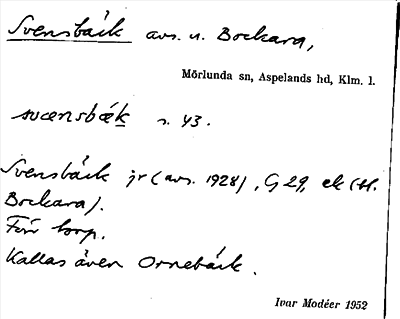 Svensbäck avs. u. Bockara,
Mörlunda sn, Aspelands hd, Klm. l.
svensbæk s. 43.
Svensbäck jr (avs. 1928), G 29, ek (St.
Bockara).
Förr torp.
Kallas även Ornebäck.
Ivar Modéer 1952